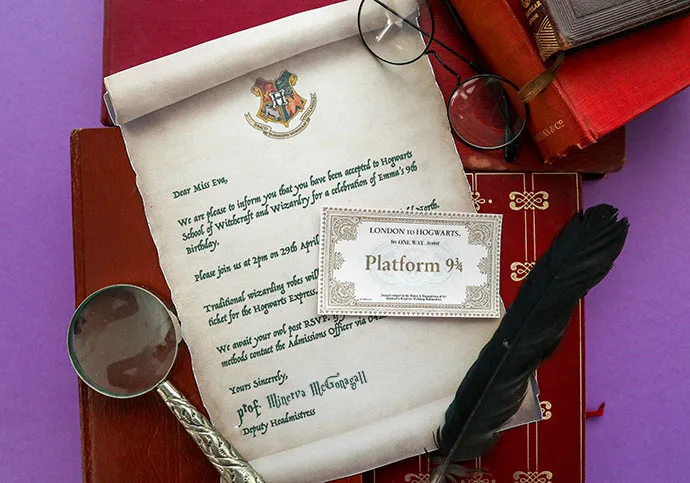 Dear Miss Eva,
We are please to inform you that you have been accepted to Hogwarts
School of Witchcraft and Wizardry for a celebration of Emma's 9th
Birthday.
Please join us at 2pm on 29th April North.
Traditional wizarding robes will
ticket for the Hogwarts Express
We await your own post RSVP.
methods contact the Admissions Officer via
Yours Sincerely,
prof. Minerva McGonagall
Deputy Headmistress
LONDON TO HOGWARTS.
for ONE WAY travel
Platform 9¾
& CO